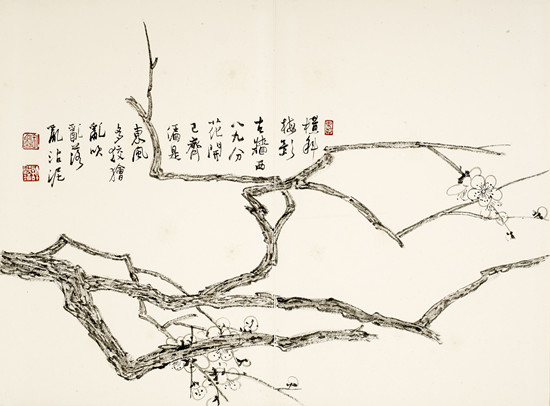 橫斜
梅影
古牆西
八九分
花開
已齊
偏是
東風
多狡獪
亂吹
亂落
亂沾泥